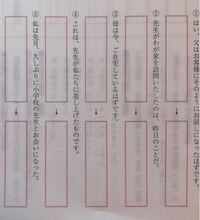 ①はい、父はお客様にそのようにお話しになったはずです。
②先生がわが家を訪問いたしたのは、昨日のことだ。
③母は今、ご在宅しているはずです。
④これは、先生が私たちに差し上げたものです。
⑤私は先月、久しぶりに小学校の先生とお会いになった。